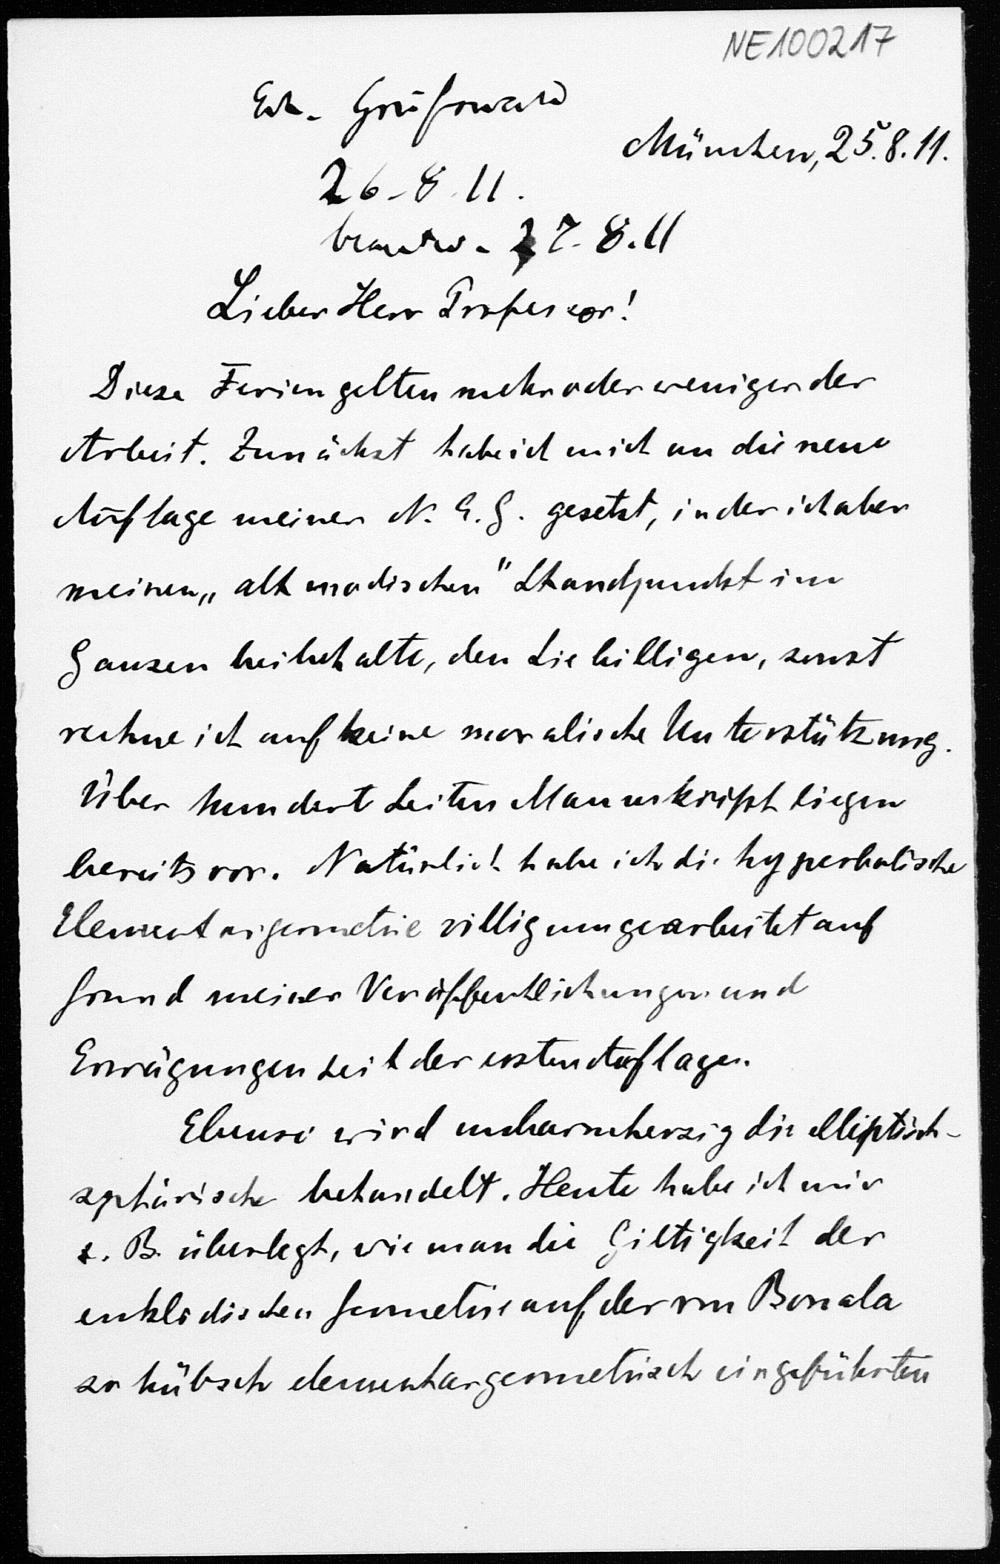 NE100217
Erh. Greifswald
München, 25.8.11.
26-8.11.
beantw. 27.8.11
Lieber Herr Professor!
Diese Ferien gelten mehr oder weniger der
Arbeit. Zunächst habe ich mich an die neue
Auflage meiner N. E. G. gesetzt, in der ich aber
meinen „altmodischen" Standpunkt im
Ganzen beibehalte, den Sie billigen, sonst
rechne ich auf keine moralische Unterstützung.
Über hundert Seiten Manuskript liegen
bereits vor. Natürlich habe ich die hyperbolische
Elementargeometrie völlig umgearbeitet auf
Grund meiner Veröffentlichungen und
Erwägungen seit der ersten Auflage.
Ebenso wird unbarmherzig die elliptisch-
sphärische behandelt. Heute habe ich mir
z. B. überlegt, wie man die Giltigkeit der
euklidischen Geometrie auf der von Bonola
so hübsch elementargeometrisch eingeführten